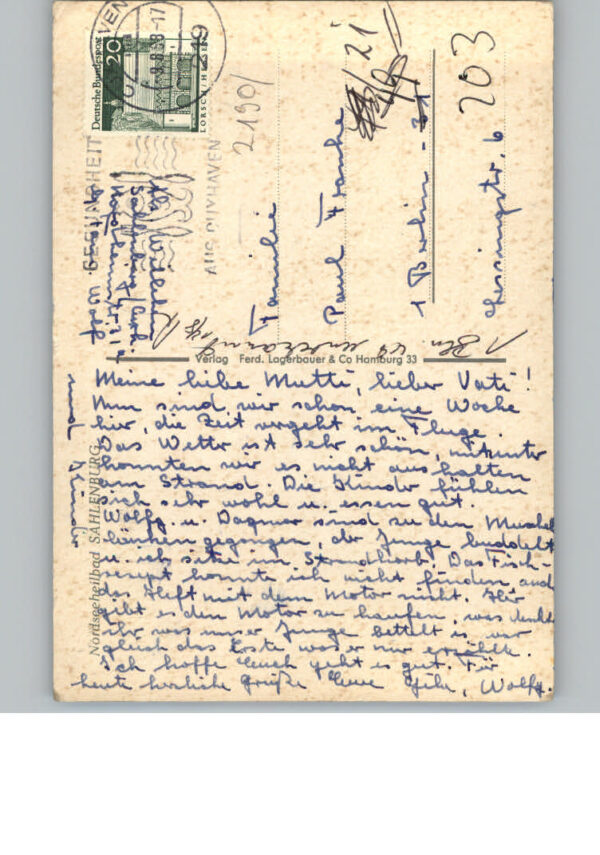 Deutsche Bundespost
20
LORSCH / HESSEN
219
-9.8.68-17
GESUNDHEIT
AUS CUXHAVEN
2190/
Familie
Paul Franke
1 Berlin - 31
Lessingstr. 6
/21
203
Verlag Ferd. Lagerbauer & Co Hamburg 33
Nordseeheilbad SAHLENBURG
Meine liebe Mutti, lieber Vati!
Nun sind wir schon eine Woche
hier, die Zeit vergeht im Fluge.
Das Wetter ist sehr schön, mitunter
konnten wir es nicht aushalten
am Strand. Die Kinder fühlen
sich sehr wohl u. essen gut.
Wolfg. u. Dagmar sind zu den Muschel
bänken gegangen, der Junge buddelt
u. ich sitze im Strandkorb. Das Fisch-
rezept konnte ich nicht finden, auch
das Heft mit dem Motor nicht. Hier
gibt es den Motor zu kaufen, was denkt
ihr was unser Junge bettelt es war
gleich das Erste was er nur erzählte.
Ich hoffe Euch geht es gut. Für
heute herzliche Grüße Eure Gila, Wolfg.
und Kinder